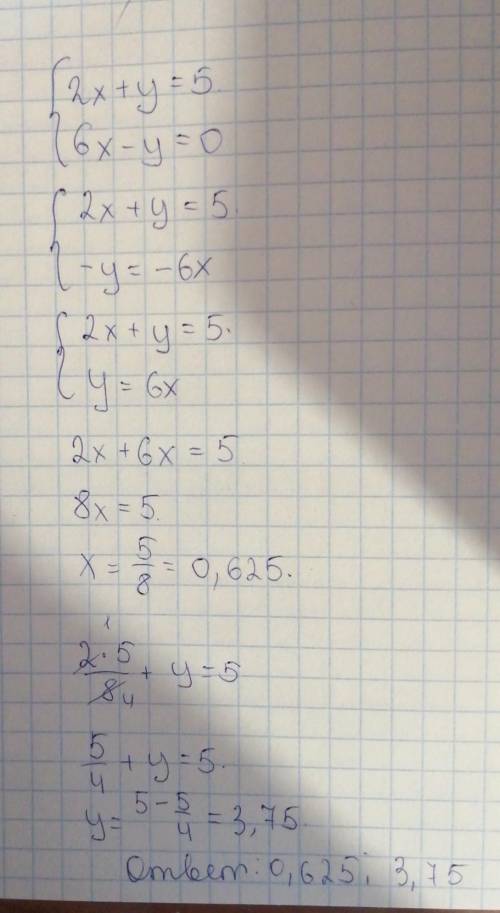 2x+y=5.
6x-y=0
2x+y=5.
-y=-6x
2x+y=5.
y=6x
2x+6x=5
8x=5.
x=5/8=0,625.
1
2·5/8 4 + y=5
5/4+y=5.
y=5-5/4=3,75.
Ответ: 0,625; 3,75